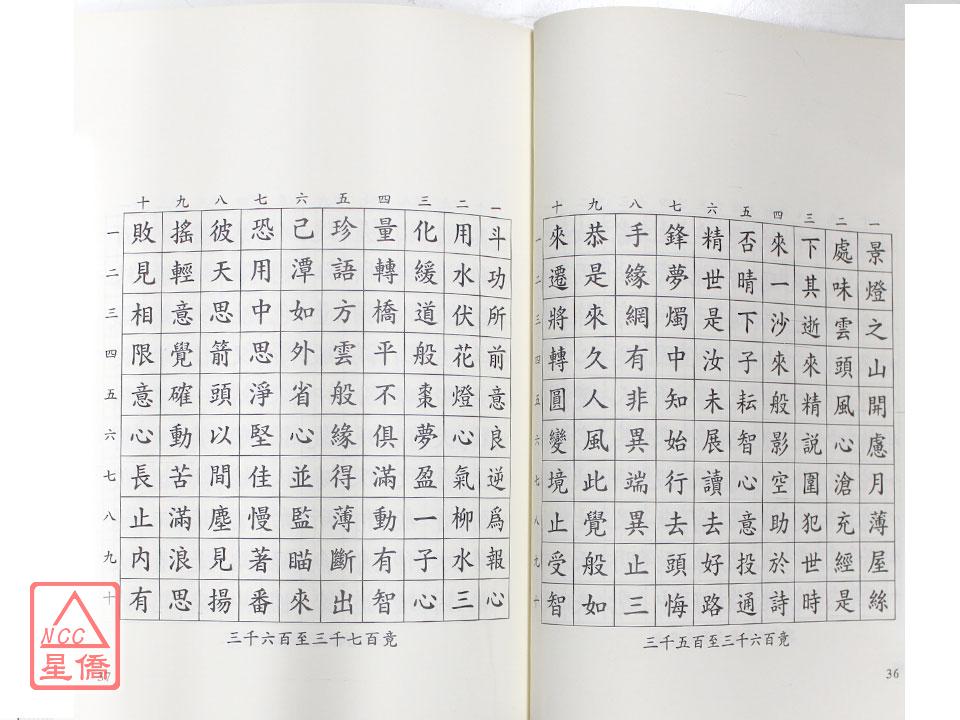 十九八七六五四三二一
一二三四五六七八九十
景燈之山開慮月薄屋絲
處味雲頭風心滄充經是
下其逝來精說圍犯世時
來一沙來般影空助於詩
否晴下子耘智心意投通
精世是汝未展讀去好路
鋒夢燭中知始行去頭悔
手緣網有非異端異止三
恭是來久人風此覺般如
來遷將轉圓變境止受智
三千五百至三千六百竟
36
十九八七六五四三二一
一二三四五六七八九十
斗功所前意良逆爲報心
用水伏花燈心氣柳水三
化緩道般棗夢盈一子心
量轉橋平不俱滿動有智
珍語方雲般緣得薄斷出
己潭如外省心並監瞄來
恐用中思淨堅佳慢著番
彼天思箭頭以間塵見揚
搖輕意覺確動苦滿浪思
敗見相限意心長止內有
三千六百至三千七百竟
37
NCC
星僑